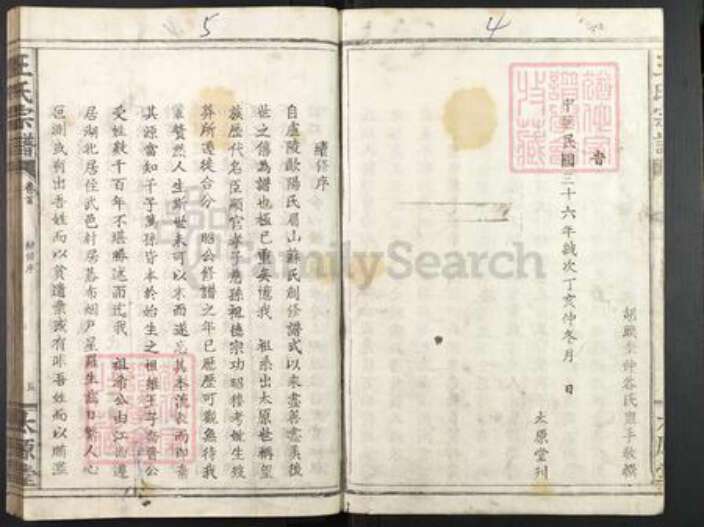 4
時
中華民國三十六年歲次丁亥仲冬月 日
太原堂刊
5
王氏宗譜
卷首
續修序
五
太原堂
續修序
自盧陵歐陽氏眉山蘇氏創修譜式以來盡善盡美後
世之傳為譜也極已重矣憶我 祖系出太原世稱望
族歷代名臣顯宦孝子慈孫祖德宗功昭穆考妣生歿
葬所遷徙合分 昭公修譜之年已歷歷可觀無待我
輩贅然人生斯世未可以末而遂忘其本流長而即棄
其源當知子子萬孫皆本於始生之祖維王子喬晉公
受姓數千百年不堪勝述而迄我 祖希公由江西遷
居湖北居住武邑村居碁布烟戶星羅生齒日繁人心
叵測或有出吾姓而以貧遺棄或有非吾姓而以瞞濫
FamilySearch